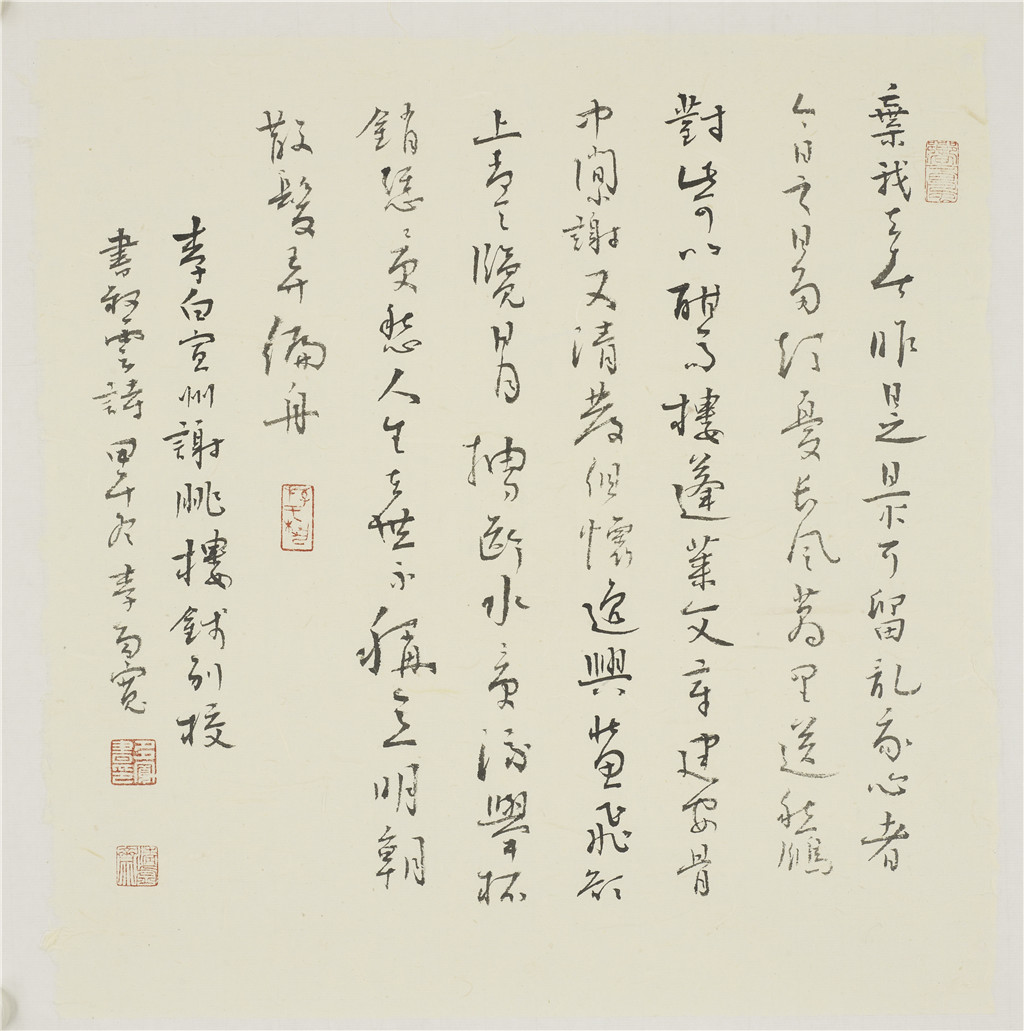 棄我去者昨日之日不可留乱我心者
今日之日多煩憂長風萬里送秋雁
對此可以酣高樓蓬萊文章建安骨
中間小謝又清發俱懷逸興壯思飛欲
上青天覽明月抽刀斷水水更流舉杯
銷愁〻更愁人生在世不稱意明朝
散髮弄偏舟
李白宣州謝脁樓餞別校
書叔雲詩甲午冬李多寬